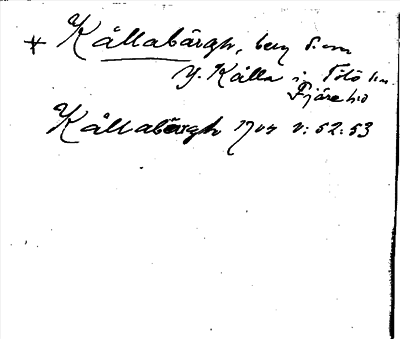 * Kållabärgh, berg S. om
Y. Kålla i Tölö sn.
Fjäre hd
Kållabärgh 1704 v: 52: 53